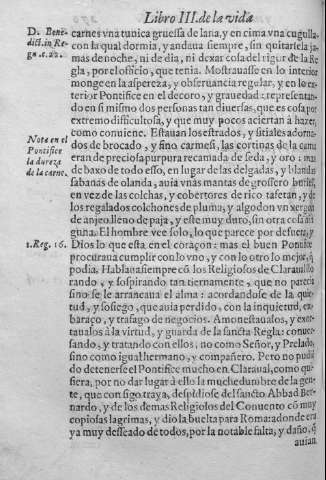 Libro III. de la vida
D. Bene-
dict. in Re-
g. c. 22.
carnes vna tunica gruessa de lana, y en cima vna cugulla,
con la qual dormia, y andaua siempre, sin quitarsela ja-
mas de noche, ni de dia, ni dexar cosa del rigor de la Re
gla, por el officio, que tenia. Mostrauasse en lo interior
monge en la aspereza, y obseruancia regular, y en lo ex-
terior Pontifice en el decoro, y grauedad: representan-
do en si mismo dos personas tan diuersas, que es cosa por
extremo difficultosa, y que muy pocos aciertan à hazer,
como conuiene. Estauan los estrados, y sitiales adorna-
Note en el
Pontifice
la dureza
de la carne.
dos de brocado, y sino carmesi, las cortinas de la cama
eran de preciosa purpura recamada de seda, y oro: mas
de baxo de todo esso, en lugar de las delgadas, y blandas
sabanas de olanda, auia vnas mantas de grossero buriel,
en vez de las colchas, y cobertores de rico tafetan, y de
los regalados colchones de pluma, y algodon vn xergon
de anjeo lleno de paja, y este muy duro, sin otra cosa al-
guna. El hombre vee solo, lo que parece por defuera, y
1. Reg. 16.
Dios lo que esta en el coraçon: mas el buen Pontifice
procuraua cumplir con lo vno, y con lo otro lo mejor, q̃
podia. Hablaua siempre cõ los Religiosos de Claraual llo
rando, y sospirando tan tiernamente, que no parecia
sino se le arrancaua el alma: acordandose de la quie-
tud, y sossiego, que auia perdido, con la inquietud, em-
baraço, y trafago de negocios. Amonestaualos, y exor-
taualos à la virtud, y guarda de la sancta Regla: conuer-
sando, y tratando con ellos, no como Señor, y Prelado,
sino como igual hermano, y compañero. Pero no pudiẽ
do detenerse el Pontifice mucho en Claraual, como qui-
siera, por no dar lugar à ello la muchedumbre de la gen-
te, que consigo traya, despidiose del sancto Abbad Ber-
nardo, y de los demas Religiosos del Conuento cõ muy
copiosas lagrimas, y dio la buelta para Roma: adonde era
ya muy desseado de todos, por la notable falta, y daño, q̃
auian